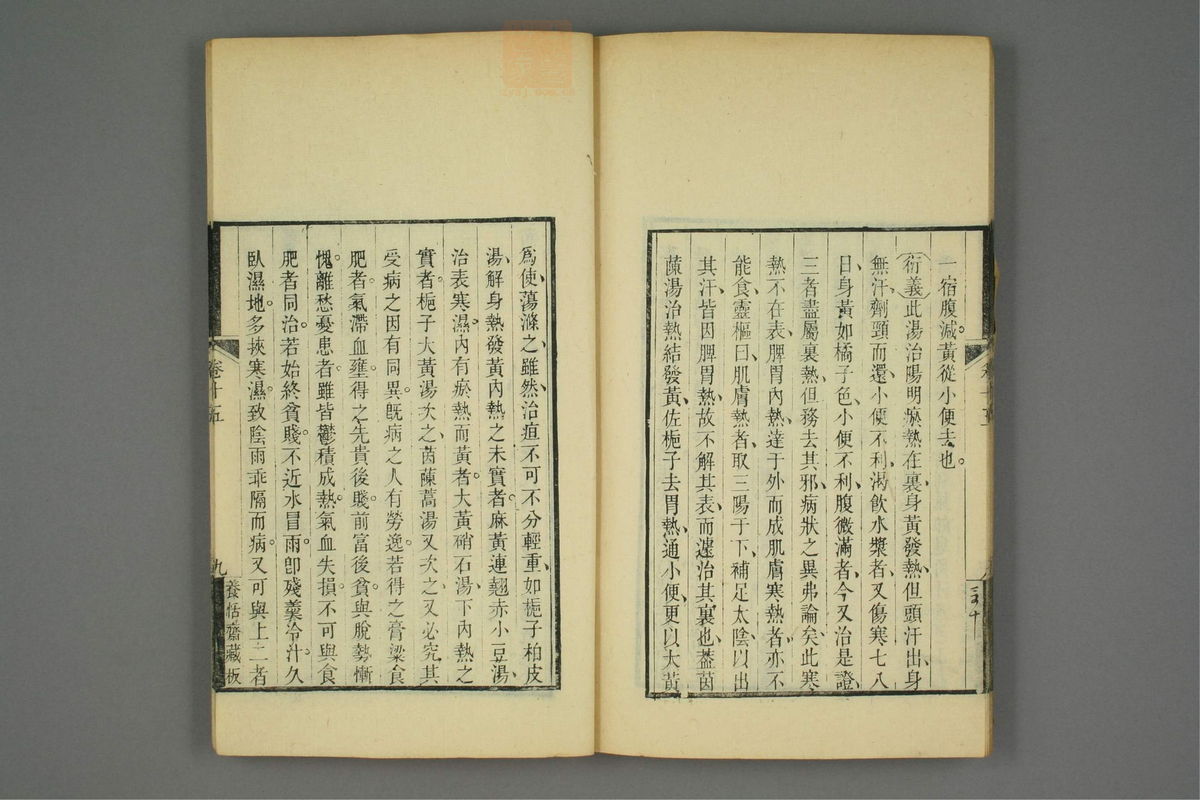 一宿腹減黃從小便去也。
衍義此湯治陽明瘀熱在裏、身黃發熱、但頭汗出、身
無汗、劑頸而還、小便不利、渴飲水漿者、又傷寒七八
日、身黃如橘子色、小便不利、腹微滿者、今又治是證、
三者盡屬裏熱、但務去其邪、病狀之異弗論矣、此寒
熱不在表、脾胃內熱、達于外而成肌膚寒熱者、亦不
能食、靈樞曰、肌膚熱者、取三陽于下、補足太陰以出
其汗、皆因脾胃熱、故不解其表、而遽治其裏也、葢茵
蔯湯治熱結發黃、佐梔子去胃熱、通小便、更以大黃
爲使蕩滌之、雖然治疸不可不分輕重、如梔子柏皮
湯、解身熱發黃內熱之未實者。麻黃連翹赤小豆湯、
治表寒濕。內有瘀熱而黃者。大黃硝石湯、下內熱之
實者。梔子大黃湯次之、茵蔯蒿湯又次之、又必究其
受病之因有同異。旣病之人有勞逸。若得之膏粱食
肥者。氣滯血壅。得之先貴後賤。前富後貧。與脫勢慚
愧。離愁憂患者。雖皆鬱積成熱。氣血失損。不可與食
肥者同治。若始終貧賤。不近水冒雨。卽殘羹冷汁。久
臥濕地。多挾寒濕。致陰雨乖隔而病。又可與上二者
卷十五
九
養恬齋藏板